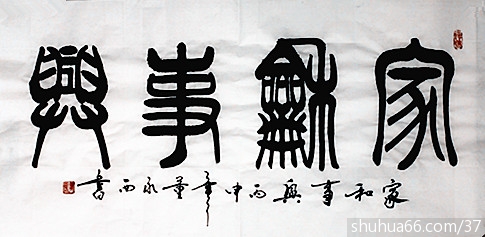 家龢事興
家和事興丙申年董永西書
shuhua66.com/37